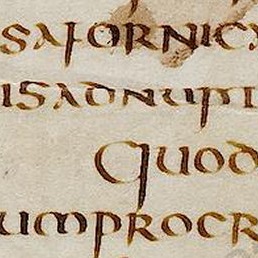 safornica
isadnupti
quod
umprocr